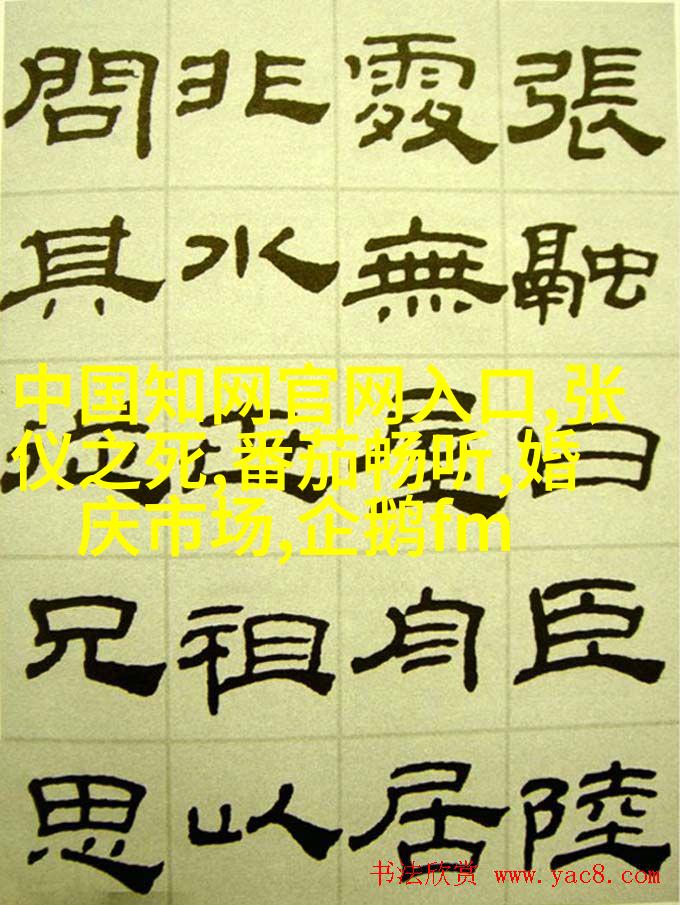 張融曰臣陸
處無屋舟居
非水祖以
問其兄思
中国知网官网入口,张
仪之死,番茄畅听,婚
庆市场,企鹅fm
书法欣赏 www.yac8.com